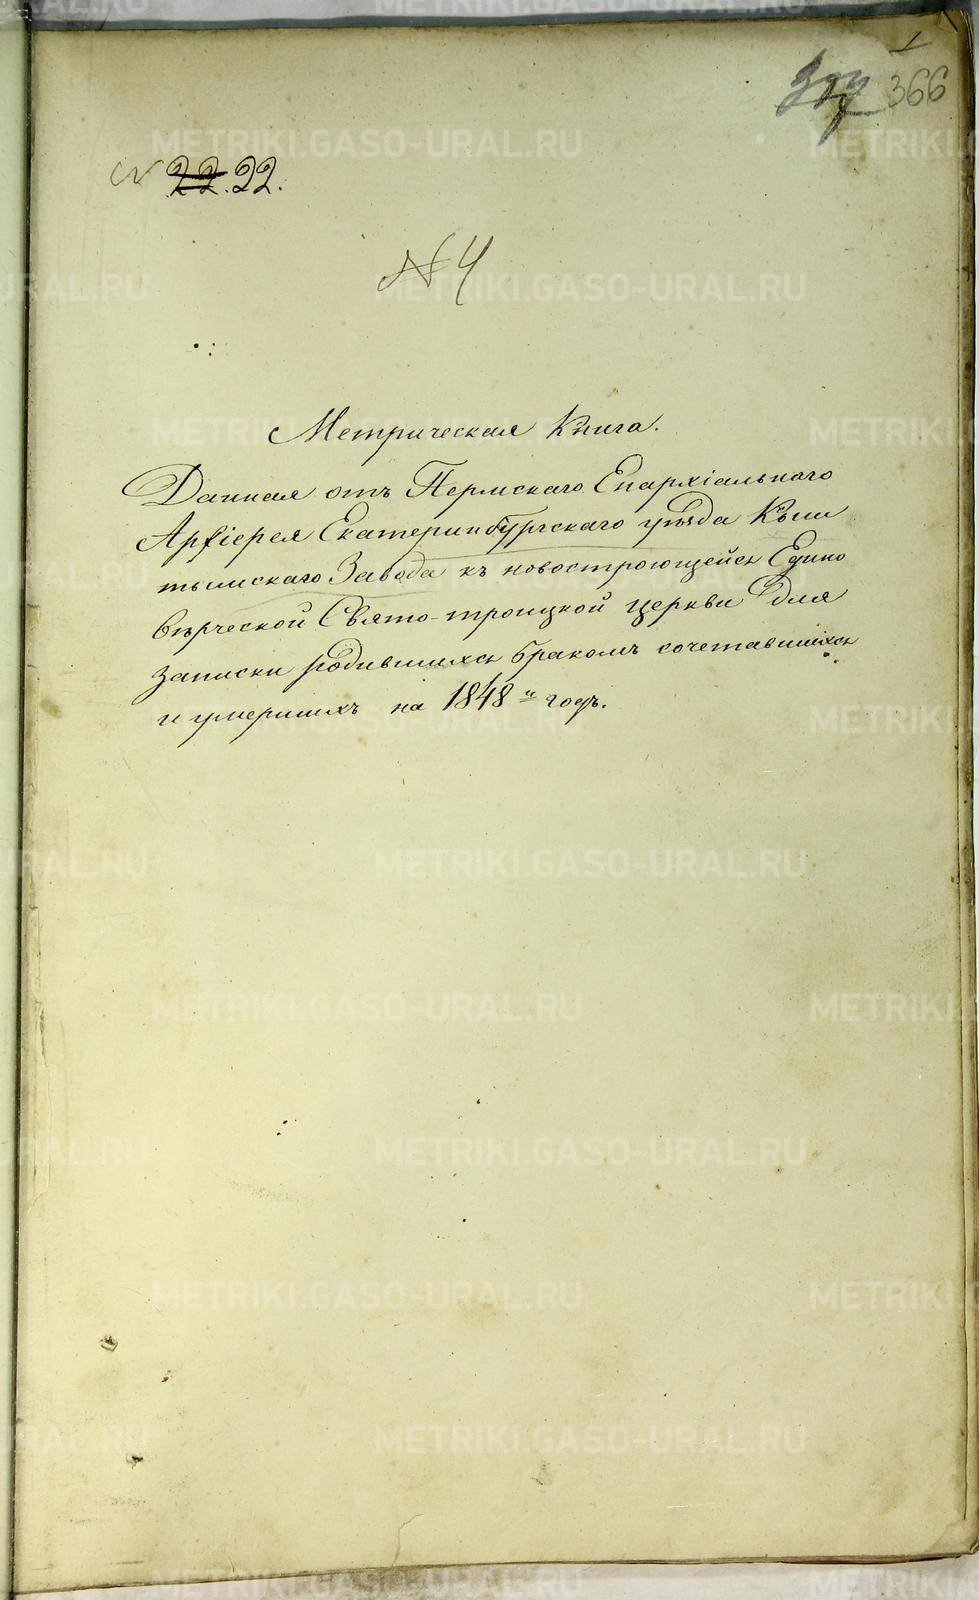 1
366
N 22. 22.
N 4
Метрическая Книга.
Данная отъ Пермскаго Епархіальнаго
Архіерея Екатеринбургскаго уѣзда Кыш
тымскаго Завода къ новостроющейся Едино
вѣрческой Свято-троицкой церкви для
записки родившихся бракомъ сочетавшихся
и умершихъ на 1848й годъ.
METRIKI.GASO-URAL.RU